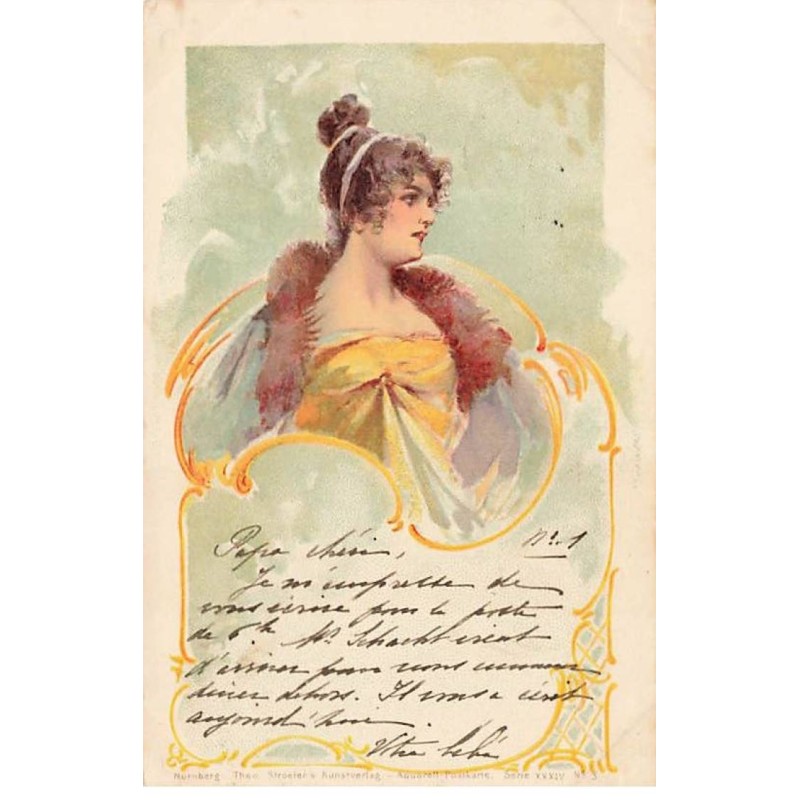 Papa chéri, No. 1
Je m'empresse de
vous écrire pour la poste
de 6.h Mr Schacht vient
d'arriver pour nous emmener
dîner dehors. Il vous a écrit
aujourd'hui.
Votre bébé
Nürnberg Theo. Stroefer's Kunstverlag - Aquarell-Postkarte. Serie XXXIV Nº 3